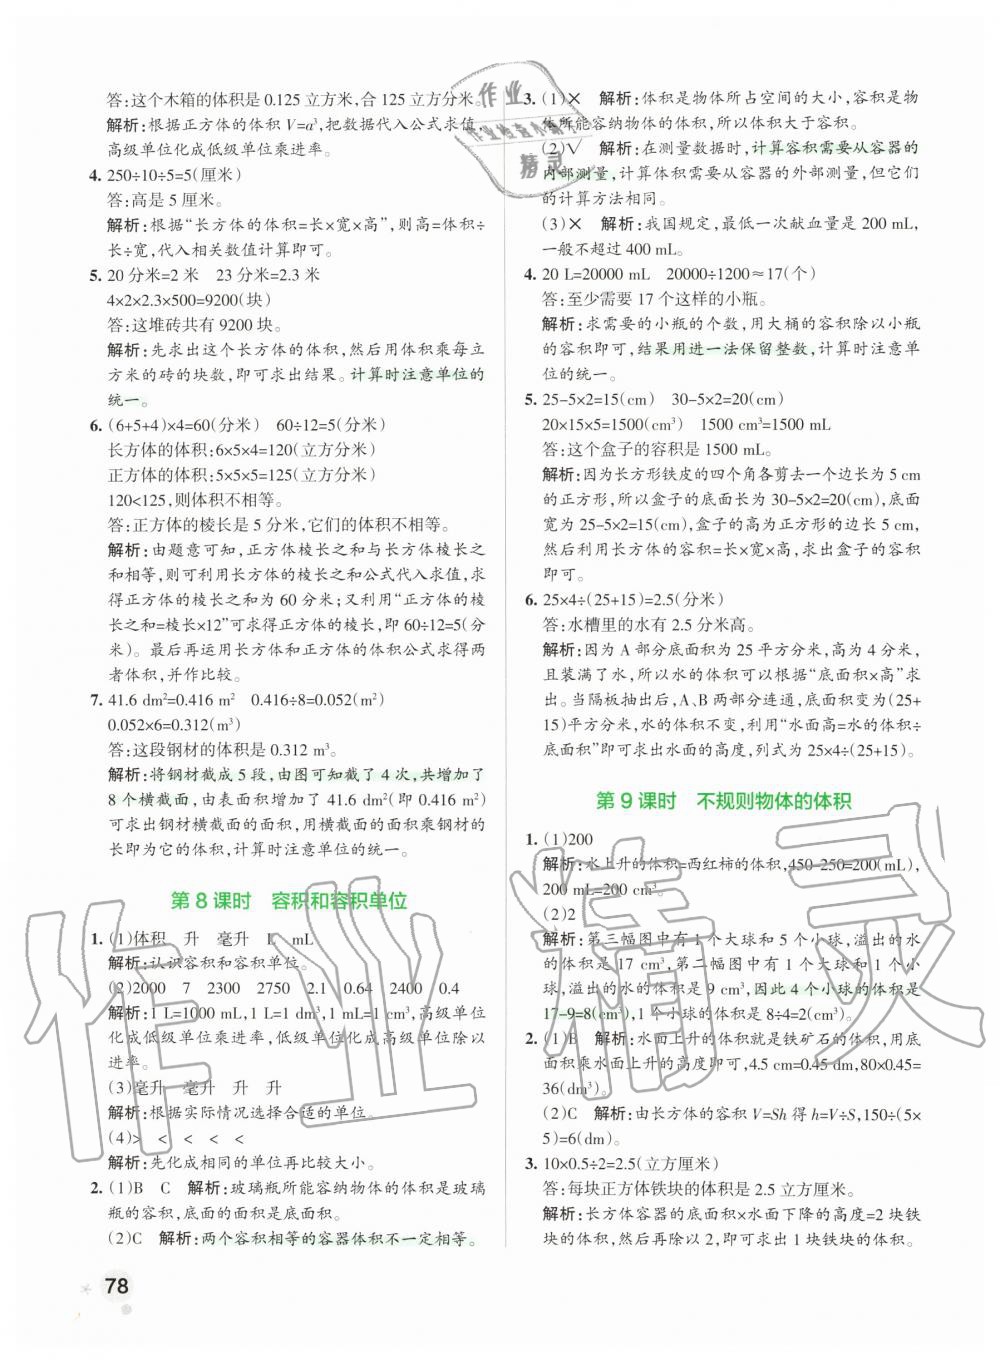 答:这个木箱的体积是 0.125 立方米,合 125 立方分米。
解析:根据正方体的体积 V=a³,把数据代入公式求值,
高级单位化成低级单位乘进率。
4. 250÷10÷5=5(厘米)
答:高是 5 厘米。
解析:根据“长方体的体积=长×宽×高”,用高=体积÷
长÷宽,代入相关数值计算即可。
5. 20 分米=2 米 23 分米=2.3 米
4×2×2.3×500=9200(块)
答:这堆砖共有 9200 块。
解析:先求出这个长方体的体积,然后用体积乘每立
方米的砖的块数,即可求出结果。计算时注意单位的
统一。
6. (6+5+4)×4=60(分米) 60÷12=5(分米)
长方体的体积:6×5×4=120(立方分米)
正方体的体积:5×5×5=125(立方分米)
120<125,则体积不相等。
答:正方体的棱长是 5 分米,它们的体积不相等。
解析:由题意可知,正方体棱长之和与长方体棱长之
和相等,则可利用长方体的棱长之和公式代入求值,求
得正方体的棱长之和为 60 分米;又利用“正方体的棱
长之和=棱长×12”可求得正方体的棱长,即 60÷12=5(分
米)。最后再运用长方体和正方体的体积公式求得两
者体积,并作比较。
7. 41.6 dm²=0.416 m² 0.416÷8=0.052(m²)
0.052×6=0.312(m³)
答:这段钢材的体积是 0.312 m³。
解析:将钢材截成 5 段,由图可知截了 4 次,共增加了
8 个横截面,由表面积增加了 41.6 dm²(即 0.416 m²)
可求出钢材横截面的面积,用横截面的面积乘钢材的
长即为它的体积,计算时注意单位的统一。
第 8 课时 容积和容积单位
1. (1)体积 升 毫升 L mL
解析:认识容积和容积单位。
(2)2000 7 2300 2750 2.1 0.64 2400 0.4
解析:1 L=1000 mL,1 L=1 dm³,1 mL=1 cm³,高级单位
化成低级单位乘进率,低级单位化成高级单位除以
进率。
(3)毫升 毫升 升 升
解析:根据实际情况选择合适的单位。
(4)> < < < <
解析:先化成相同的单位再比较大小。
2. (1)B C 解析:玻璃瓶所能容纳物体的体积是玻璃
瓶的容积,底面的面积是底面积。
(2)C 解析:两个容积相等的容器体积不一定相等。
78
3. (1)× 解析:体积是物体所占空间的大小,容积是物
体所能容纳物体的体积,所以体积大于容积。
(2)√ 解析:在测量数据时,计算容积需要从容器的
内部测量,计算体积需要从容器的外部测量,但它们
的计算方法相同。
(3)× 解析:我国规定,最低一次献血量是 200 mL,
一般不超过 400 mL。
4. 20 L=20000 mL 20000÷1200≈17(个)
答:至少需要 17 个这样的小瓶。
解析:求需要的小瓶的个数,用大桶的容积除以小瓶
的容积即可,结果用进一法保留整数,计算时注意单
位的统一。
5. 25-5×2=15(cm) 30-5×2=20(cm)
20×15×5=1500(cm³) 1500 cm³=1500 mL
答:这个盒子的容积是 1500 mL。
解析:因为长方形铁皮的四个角各剪去一个边长为 5 cm
的正方形,所以盒子的底面长为 30-5×2=20(cm),底面
宽为 25-5×2=15(cm),盒子的高为正方形的边长 5 cm,
然后利用长方体的容积=长×宽×高,求出盒子的容积
即可。
6. 25×4÷(25+15)=2.5(分米)
答:水槽里的水有 2.5 分米高。
解析:因为 A 部分底面积为 25 平方分米,高为 4 分米,
且装满了水,所以水的体积可以根据“底面积×高”求
出。当隔板抽出后,A、B 两部分连通,底面积变为(25+
15)平方分米,水的体积不变,利用“水面高=水的体积÷
底面积”即可求出水面的高度,列式为 25×4÷(25+15)。
第 9 课时 不规则物体的体积
1. (1)200
解析:水上升的体积=西红柿的体积,450-250=200(mL),
200 mL=200 cm³。
(2)2
解析:第三幅图中有 1 个大球和 5 个小球,溢出的水
的体积是 17 cm³,第二幅图中有 1 个大球和 1 个小
球,溢出的水的体积是 9 cm³,因此 4 个小球的体积是
17-9=8(cm³),1 个小球的体积是 8÷4=2(cm³)。
2. (1)B 解析:水面上升的体积就是铁矿石的体积,用底
面积乘水面上升的高度即可,4.5 cm=0.45 dm,80×0.45=
36(dm³)。
(2)C 解析:由长方体的容积 V=Sh 得 h=V÷S,150÷(5×
5)=6(dm)。
3. 10×0.5÷2=2.5(立方厘米)
答:每块正方体铁块的体积是 2.5 立方厘米。
解析:长方体容器的底面积×水面下降的高度=2 块铁
块的体积,然后再除以 2,即可求出 1 块铁块的体积。
作业精灵